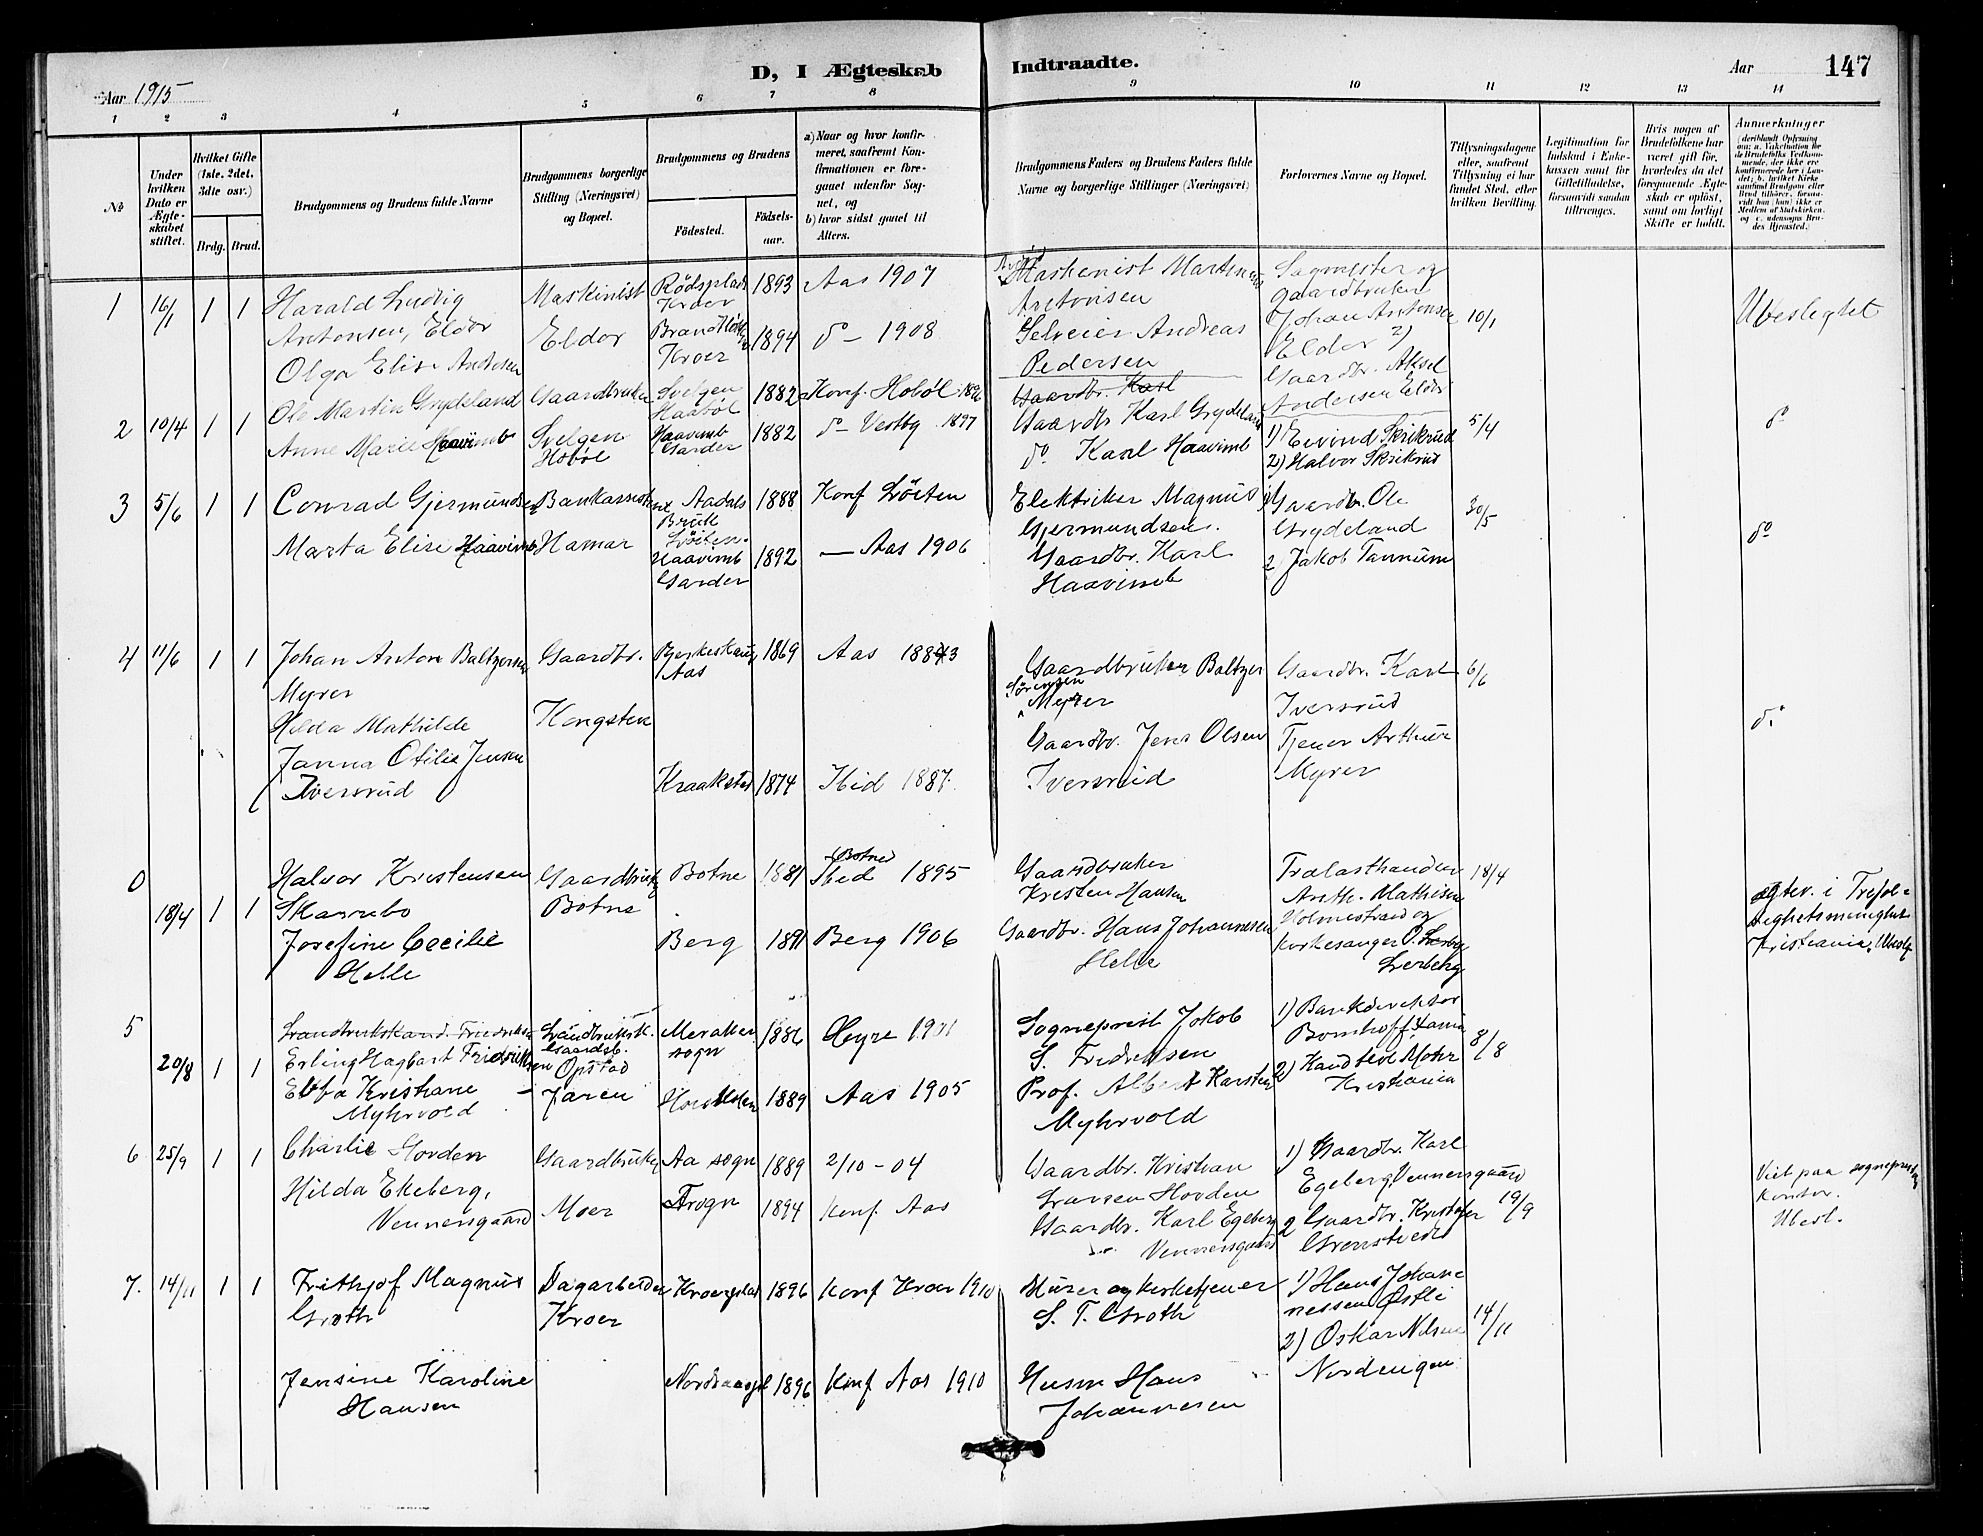 Aar 1915
D, I Ægteskab Indtraadte.
Aar
147
1 2 3 4 5 6 7 8 9 10 11 12 13 14
No
Under hvilken Dato er Ægteskabet stiftet.
Hvilket Gifte (1ste, 2det, 3die osv.)
Brdg. Brud.
Brudgommens og Brudens fulde Navne
Brudgommens borgerlige Stilling (Næringsvei) og Bopæl.
Brudgommens og Brudens
Fødested.
Fødsels-aar.
a) Naar og hvor konfirmeret, saafremt Konfirmationen er foregaaet udenfor Sognet, og
b) hvor sidst gaaet til Alters.
Brudgommens Faders og Brudens Faders fulde Navne og borgerlige Stillinger (Næringsvei)
Forlovernes Navne og Bopæl.
Tillysningsdagene eller, saafremt Tillysning ei har fundet Sted, efter hvilken Bevilling.
Legitimation for Indskud i Enkekassen samt for Giftetilladelse, forsaavidt saadan tiltrænges.
Hvis nogen af Brudefolkene har været gift før, hvorledes da det foregaaende Ægteskab er opløst, samt om lovligt Skifte er holdt.
Anmerkninger
1 16/1 1 1
Harald Ludvig
Antonsen, Eldor
Olga Elise Andersen
Maskinist
Eldor
Rødsplads
Kroer 1893 Aas 1907
Kroer 1894 do - 1908
Maskenist Martinus
Antonsen
Selveier Andreas
Pedersen
Sagmester og
gaardbruker
Johan Antonsen
Eldor 2)
Gaardbr. Aksel
Andersen Eldor
10/1
Ubeslegtet
2 10/4 1 1
Ole Martin Grydeland
Anne Marie Haavimb
Gaardbruker
Svelgen
Hobøl
Svelgen
Haabøl 1882 Konf. Hobøl
Haavimb
Garder 1882 do Vestby 1897
Gaardbr. Karl
Gaardbr Karl Grydeland
do. Karl Haavimb
1) Eivind Skrikrud
2) Halvor Skrikrud
5/4
do
3 5/6 1 1
Conrad Gjermundsen
Marta Elise Haavimb
Bankassistent
Hamar
Aadals
Bruk
Løiten 1888 Konf Løiten
Haavimb
Garder 1892 — Aas 1906
Elektriker Magnus
Gjermundsen.
Gaardbr. Karl
Haavimb
1 Gaardbr. Ole
Grydeland
2 Jakob Tannum
30/5
do
4 11/6 1 1
Johan Anton Baltzersen
Myrer
Hilda Mathilde
Janna Otilie Jensen
Iversrud
Gaardbr.
Kongsten
Bjerkeskaug
Aas 1869 Aas 1883
Kraakstad 1874 Ibid 1887.
Gaardbruker Baltzer
Sørensen
Myrer
Gaardbr. Jens Olsen
Iversrud
Gaardbr. Karl
Iversrud
Tjener Arthur
Myrer
6/6
do
0 18/4 1 1
Halvor Kristensen
Skarrebo
Josefine Cecilie
Helle
Gaardbruk
Botne
Botne 1881 (Botne) Ibid 1895
Berg 1891 Berg 1906
Gaardbruker
Kristen Hansen
Gaardbr. Hans Johannesen
Helle
Trælasthandler
Anth. Mathisen
Holmestrand og
kirkesanger O. Lerberg
Lerberg
18/4
ægtev. i Trefoldighetsmenighet
Kristiania. Ubesl.
5 20/8 1 1
Landbrukskand. Fredriksen
Erling Hagbart Fridriksen
Ebba Kristiane
Myhrvold
Landbruksk.
Gaardsb.
Opstad
Jæren
Meraker
sogn 1886
1889 Aas 1905
Sogneprest Jokob
S. Fredriksen
Prof. Albert Karsten
Myhrvold
1) Bankdirektør
Bomhoff,
2) Kand. Mohr
Kristiania
8/8
6 25/9 1 1
Charlie Hovden
Hilda Ekeberg,
Vennersgaard
Gaardbruker
Moer
Aa sogn 1889 2/10-04
Frogn 1894 Konf. Aas
Gaardbr. Kristian
Larsen Hovden
Gaardbr. Karl Egeberg
Vennersgaard
1) Gaardbr. Karl
Egeberg Vennersgaard
2 Gaardbr. Kristofer
Grønstvedt
19/9
Viet paa sogneprestens
kontor.
Ubesl.
7. 14/11 1 1
Frithjof Magnus
Groth
Jensine Karoline
Hansen
Dagarbeider
Kroer
Kroerplads 1896 Konf Kroer 1910
1896 Konf Aas 1910
Murer og kirketjener
S. T. Groth
Husm Hans
Johannesen
1) Hans Johannessen Østli
2) Oskar Nilsen
Nordengen
14/11